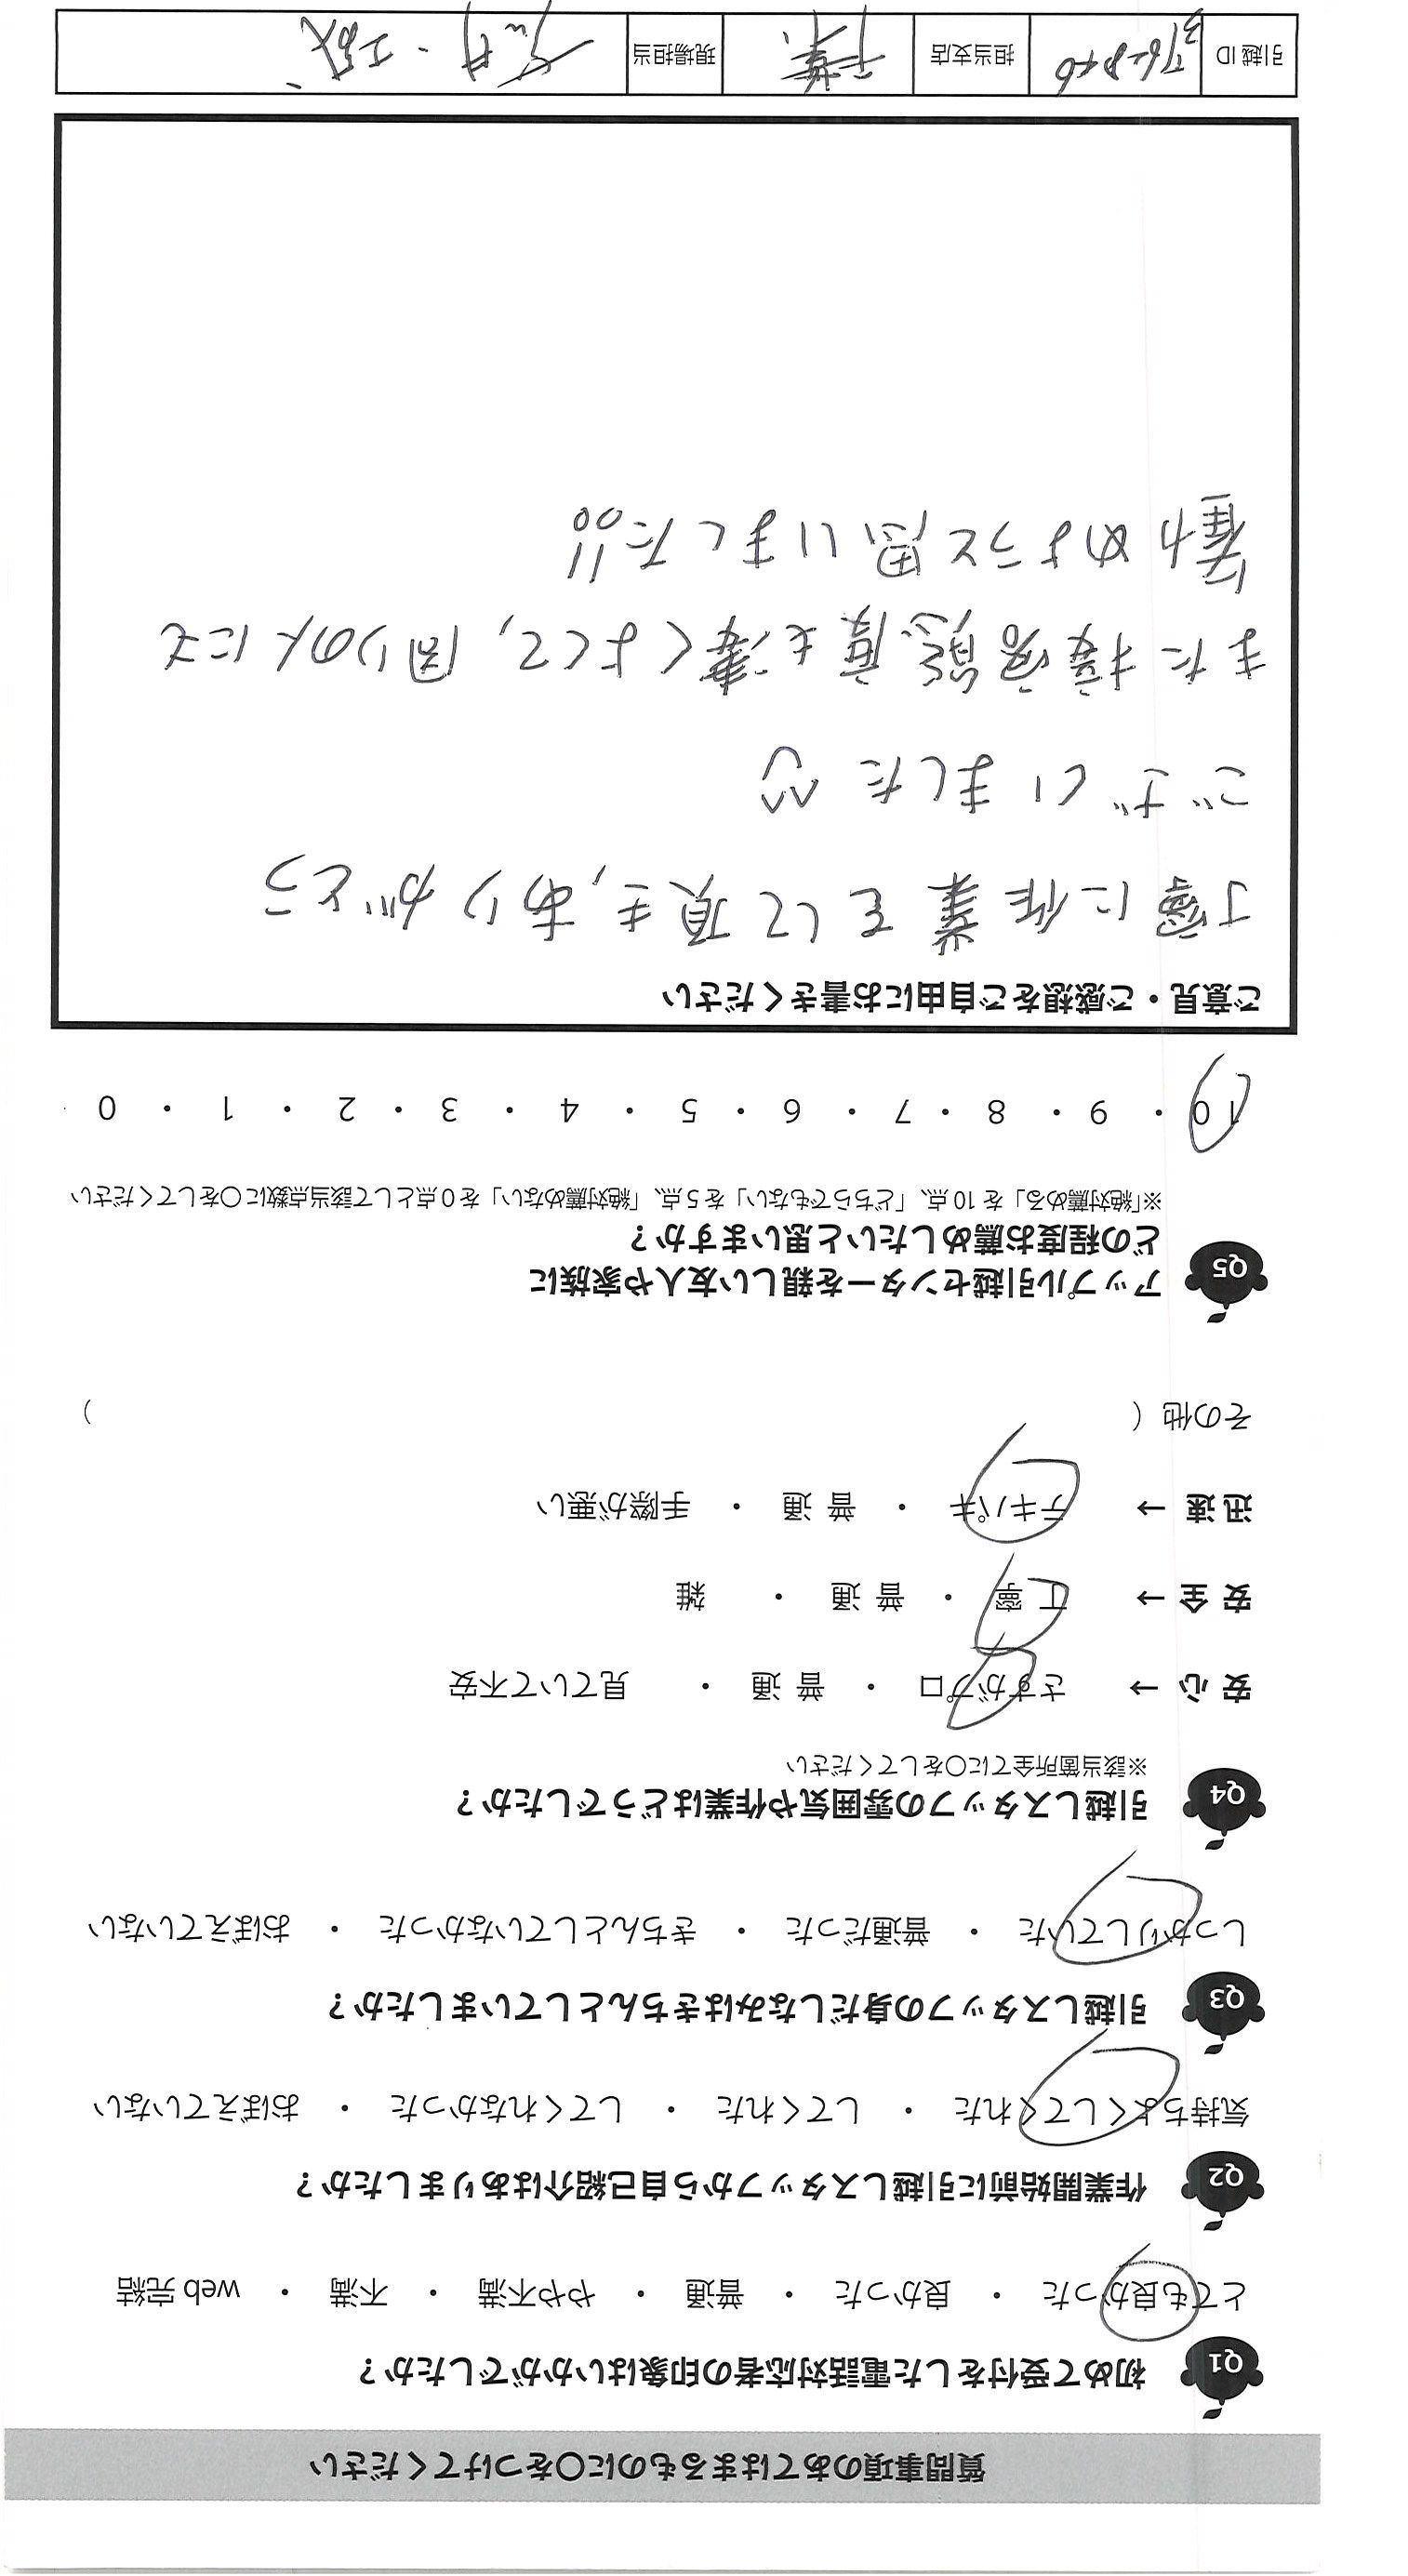 質問事項のあてはまるものに○をつけてください
Q1 初めて受付をした電話対応者の印象はいかがでしたか？
とても良かった ・ 良かった ・ 普通 ・ やや不満 ・ 不満 ・ web完結
Q2 作業開始前に引越しスタッフから自己紹介はありましたか？
気持ちよくしてくれた ・ してくれた ・ してくれなかった ・ おぼえていない
Q3 引越しスタッフの身だしなみはきちんとしていましたか？
しっかりしていた ・ 普通だった ・ きちんとしていなかった ・ おぼえていない
Q4 引越しスタッフの雰囲気や作業はどうでしたか？
※該当箇所全てに○をしてください
安心 → さすがプロ ・ 普通 ・ 見ていて不安
安全 → 丁寧 ・ 普通 ・ 雑
迅速 → テキパキ ・ 普通 ・ 手際が悪い
その他（ ）
Q5 アップル引越センターを親しい友人や家族に
どの程度お薦めしたいと思いますか？
※「絶対薦める」を10点、「どちらでもない」を5点、「絶対薦めない」を0点として該当点数に○をしてください
10 ・ 9 ・ 8 ・ 7 ・ 6 ・ 5 ・ 4 ・ 3 ・ 2 ・ 1 ・ 0
ご意見・ご感想をご自由にお書きください
丁寧に作業をして頂き、ありがとう
ございました^^
また接客態度も凄くよくて、周りの人にも
薦めようと思いました!!
引越ID 担当支店 千葉 現場担当